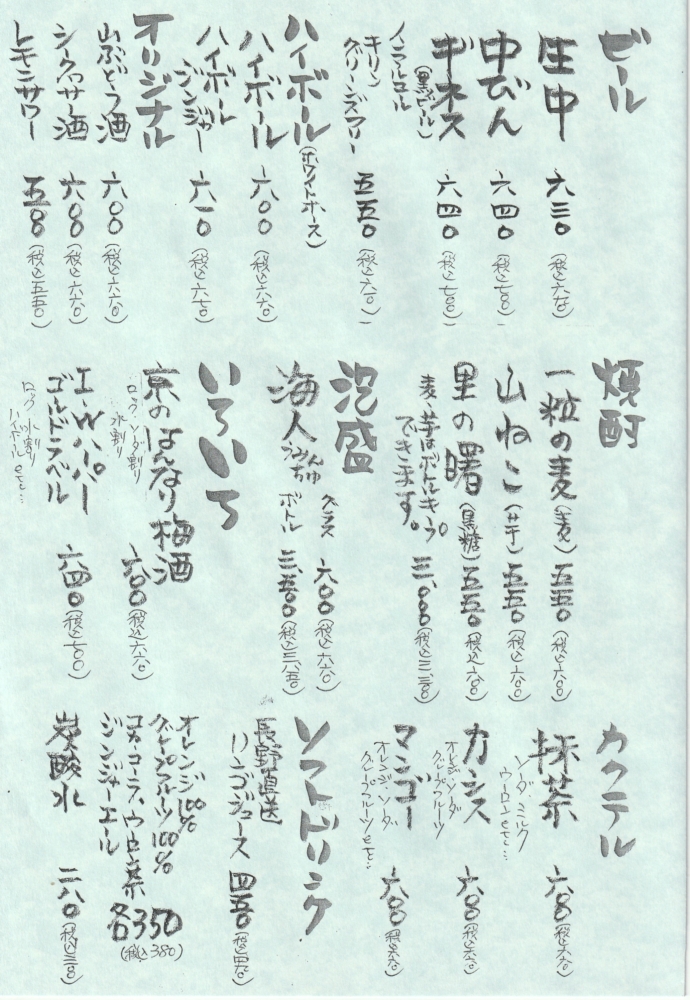 ビール
生中 六三〇 (税込 六九〇)
中びん 六四〇 (税込 七〇〇)
ギネス(黒ビール) 六四〇 (税込 七〇〇)
ノンアルコール
キリン
グリーンズフリー 五五〇 (税込 六〇〇)
ハイボール(ホワイトホース)
ハイボール 六〇〇 (税込 六六〇)
ハイボール
ジンジャー 六一〇 (税込 六七〇)
オリジナル
山ぶどう酒 六〇〇 (税込 六六〇)
シークヮサー酒 六〇〇 (税込 六六〇)
レモンサワー 五〇〇 (税込 五五〇)
焼酎
一粒の麦(麦) 五五〇 (税込 六〇〇)
山ねこ(芋) 五五〇 (税込 六〇〇)
里の曙(黒糖) 五五〇 (税込 六〇〇)
麦、芋はボトルキープ
できます。 三、〇〇〇 (税込 三、三〇〇)
泡盛
海人 うみんちゅ
グラス 六〇〇 (税込 六六〇)
ボトル 三、五〇〇 (税込 三、八五〇)
いろいろ
京のはんなり梅酒 六〇〇 (税込 六六〇)
ロック、ソーダ割り
水割り
I・Wハーパー
ゴールドラベル 六四〇 (税込 七〇〇)
ロック 水割り
ハイボール etc…
カクテル
抹茶 六〇〇 (税込 六六〇)
ソーダ、ミルク
ウーロン etc…
カシス 六〇〇 (税込 六六〇)
オレンジ、ソーダ
グレープフルーツ
マンゴー 六〇〇 (税込 六六〇)
オレンジ、ソーダ
グレープフルーツ etc…
ソフトドリンク
長野直送
リンゴジュース 四五〇
オレンジ100%
グレープフルーツ100%
コカ・コーラ、ウーロン茶
ジンジャーエール 各350
(税込380)
炭酸水 二八〇 (税込 三〇〇)